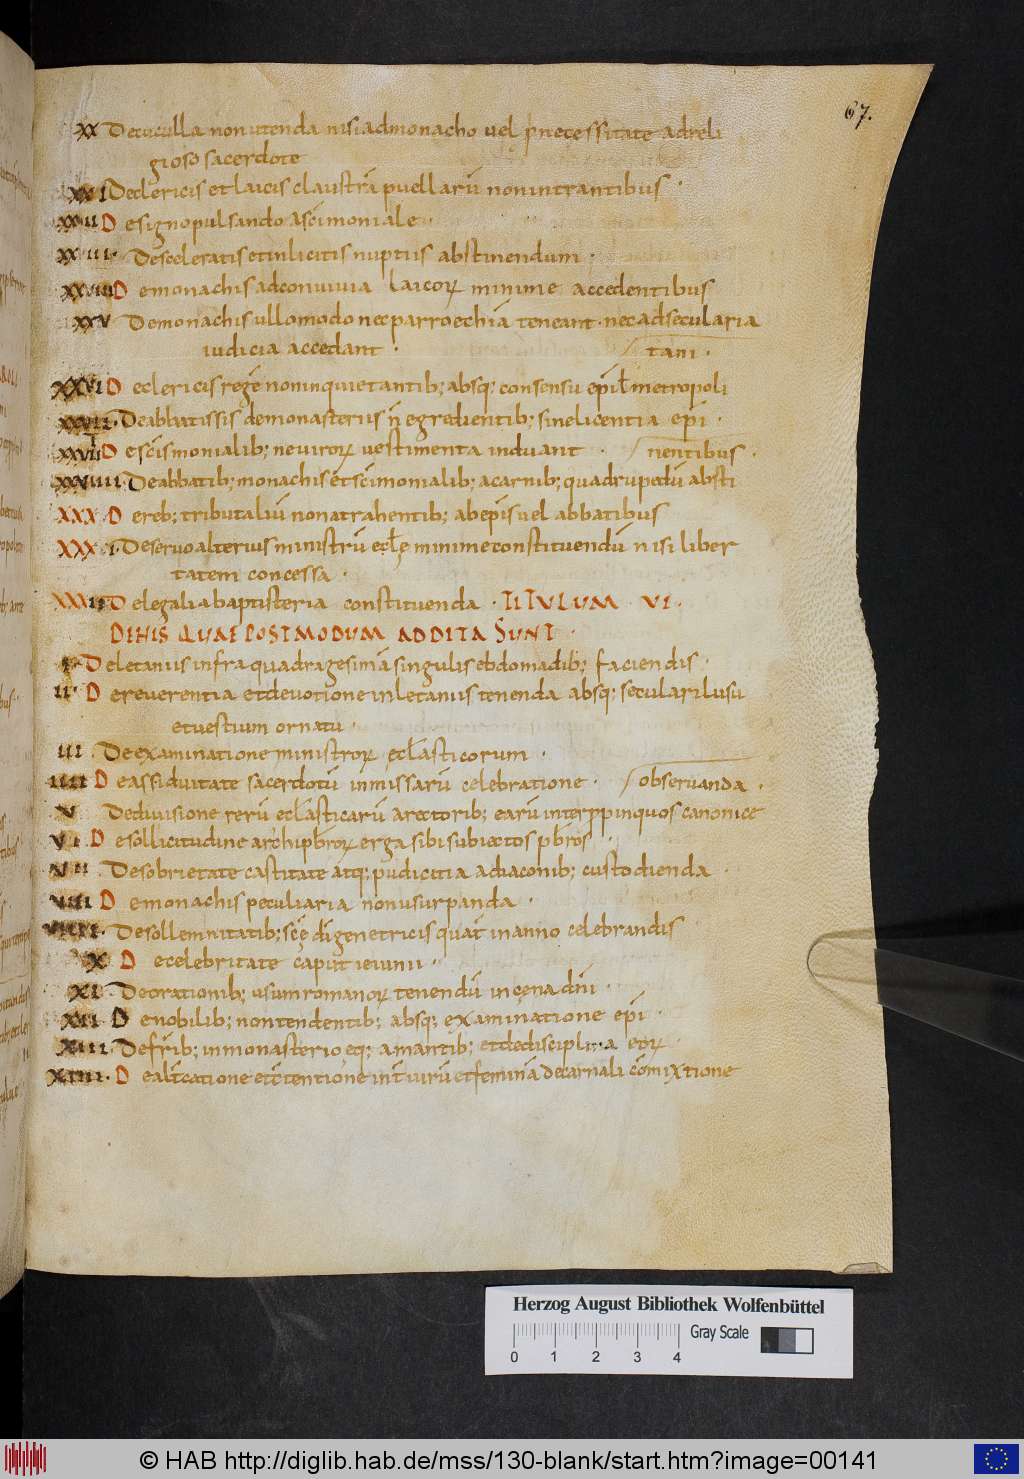 67.
XX Decuculla nonutenda nisi admonacho uel pnecessitate adreli
gioso sacerdote
XXI Declericis et laicis claustrā puellarū nonintrantibus
XXII De signo pulsando a sc̄imoniale
XXIII Desceleratis et inlicitis nuptiis abstinendum
XXIIII De monachis ad conuiuia laicoꝝ minime accedentibus
XXV Demonachis ullomodo nec parroechiā teneant nec ad secularia
iudicia accedant
XXVI De clericis regē non inquietantib; absq; consensu epī uel metropoli
/ tani
XXVII Deabbatissis de monasteriis n̄ egredientib; sine licentia epī
XXVIII De sc̄is monialib; ne uiroꝝ uestimenta induant
XXVIIII Deabbatib; monachis et sc̄imonialib; acarnib; quadrupedū absti
/ nentibus
XXX De reb; tributaliū nonatrahentib; ab epīs uel abbatibus
XXXI Deseruo alterius ministrū eccłę minime constituendū nisi liber
tatem concessa
XXXII De legalia baptisteria constituenda TITULUM VI
DE HIS QUAE POSTMODUM ADDITA SUNT
I De letaniis infra quadragesimā singulis ebdomadib; faciendis
II De reuerentia et deuotione in letaniis tenenda absq; seculari lusu
et uestium ornatu
III De examinatione ministroꝝ ecłasticorum
IIII De assiduitate sacerdotū in missarū celebratione
V Dediuisione rerū ecłasticarū a rectorib; earū inter ppinquos canonice
/ obseruanda
VI De sollicitudine archipb̄roꝝ erga sibi subiectos pb̄ros
VII Desobrietate castitate atq; pudicitia a diaconib; custodienda
VIII De monachis peculiaria non usurpanda
VIIII Desollemnitatib; sc̄ę dī genetricis quat̄ in anno celebrandis
X De celebritate caput ieiunii
XI Deorationib; usum romanoꝝ tenendū in cena dn̄i
XII De nobilib; nontendentib; absq; examinatione epī
XIII De fr̄ib; in monasterio eq; amantib; et de disciplina eoꝝ
XIIII De alt̄catione et c̄tentione int̄ uirū et feminā decarnali cōmixtione
Herzog August Bibliothek Wolfenbüttel
Gray Scale
0 1 2 3 4
© HAB http://diglib.hab.de/mss/130-blank/start.htm?image=00141